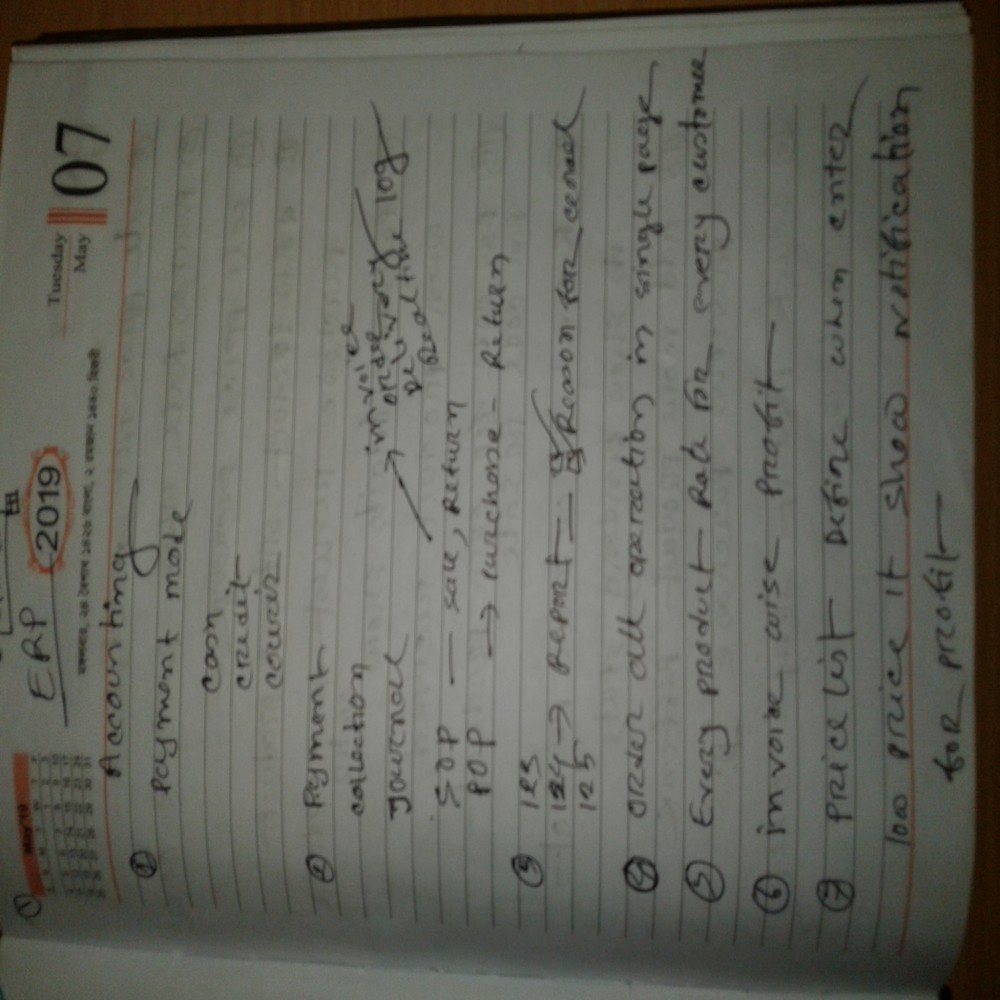 ERP
May'19
2019
Tuesday
May
07
Accounting
① Payment mode
cash
credit
② Payment
collection
Journal
invoice
order
Delivery
Realtime log
SOP — sale, Return
POP → purchase - Return
③ 123
124 → report — Reason for cancel
125
④ order all operation in single page
⑤ Every product Rate for every customer
⑥ invoice wise profit
⑦ price list Define when enter
low price it show notification
for profit